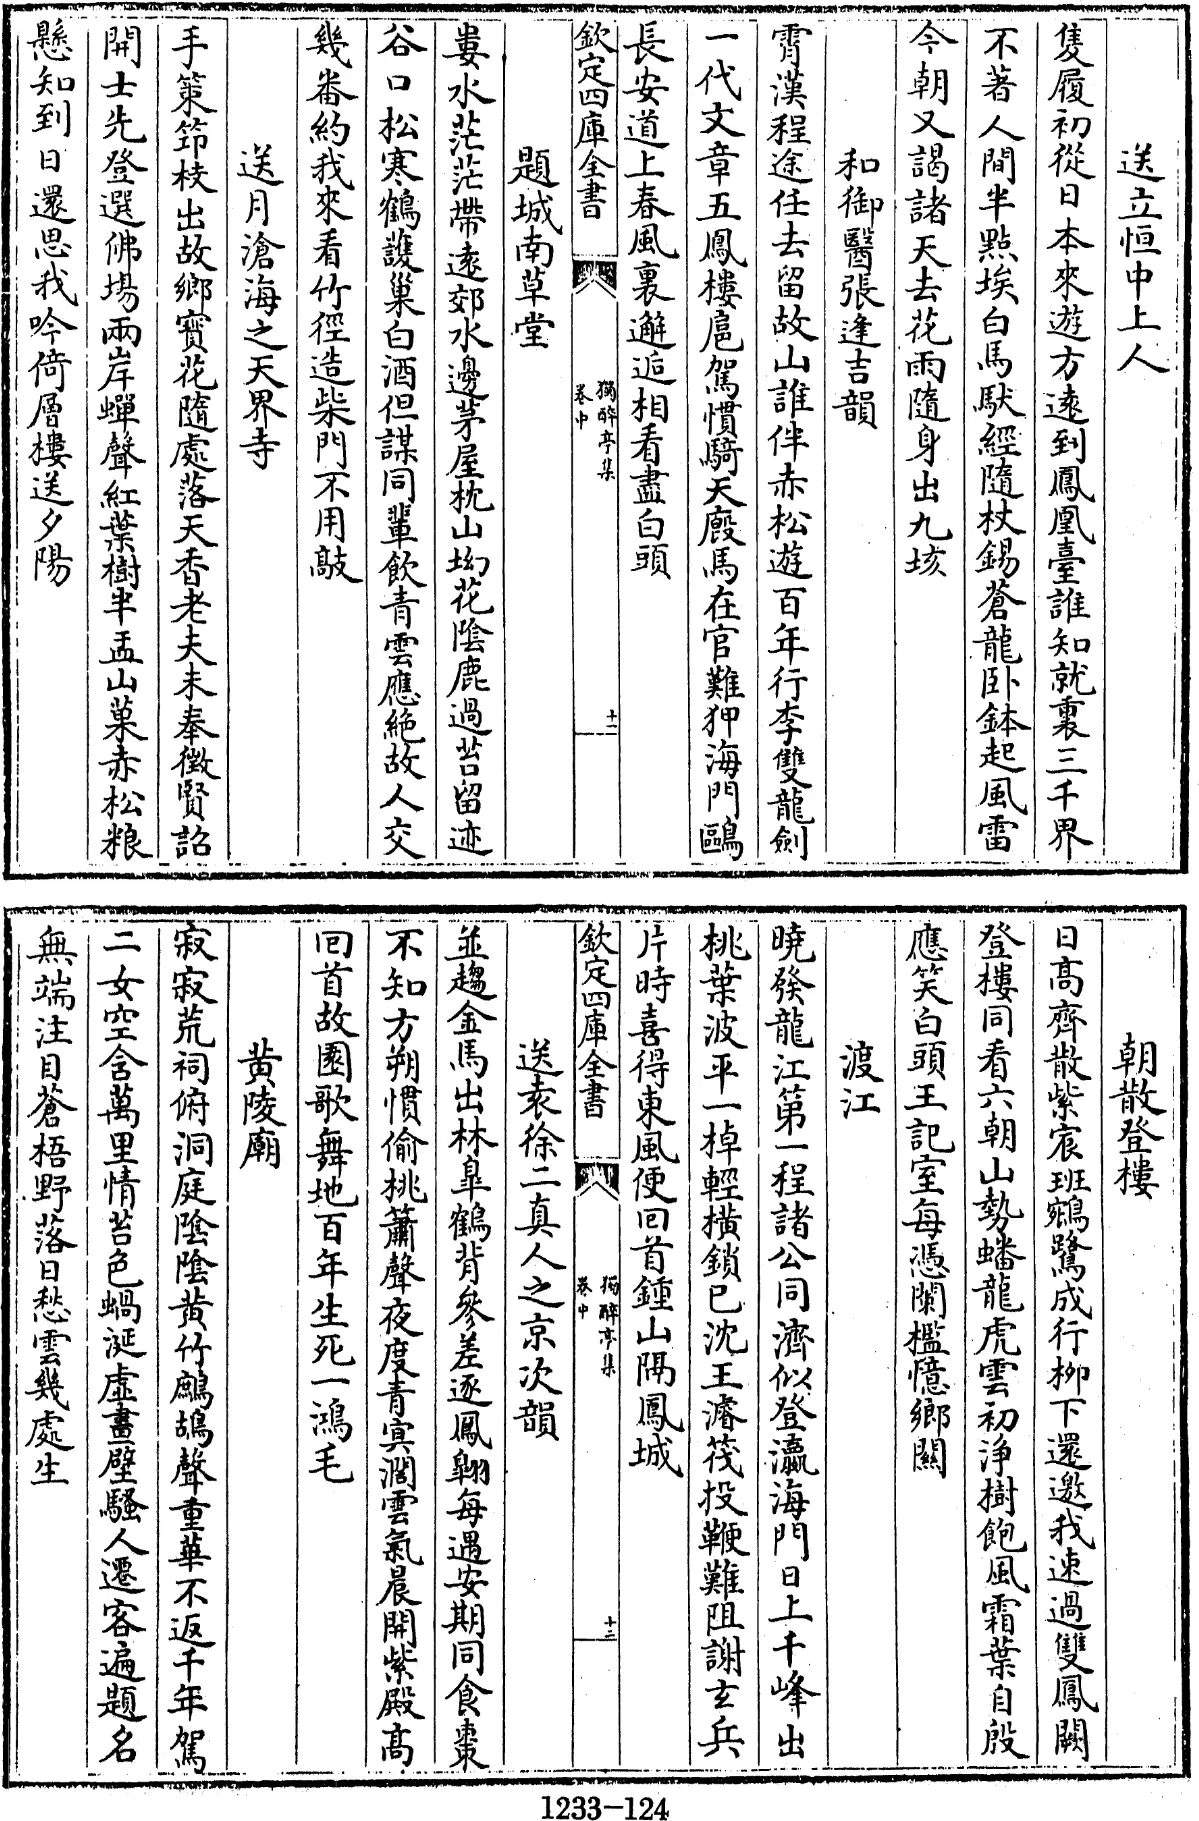 送立恒中上人
隻履初從日本來遊方遠到鳳凰臺誰知就裏三千界
不著人間半點埃白馬馱經隨杖錫蒼龍卧鉢起風雷
今朝又謁諸天去花雨隨身出九垓
和御醫張逢吉韻
霄漢程途任去留故山誰伴赤松遊百年行李雙龍劍
一代文章五鳳樓扈駕慣騎天廐馬在官難狎海門鷗
長安道上春風裏邂逅相看盡白頭
欽定四庫全書
獨醉亭集
卷中
十二
題城南草堂
婁水茫茫帶遠郊水邊茅屋枕山坳花陰鹿過苔留迹
谷口松寒鶴護巢白酒但謀同輩飲青雲應絶故人交
幾番約我來看竹徑造柴門不用敲
送月滄海之天界寺
手策筇枝出故鄉寳花隨處落天香老夫未奉徵賢詔
開士先登選佛場兩岸蟬聲紅葉樹半盂山菓赤松粮
懸知到日還思我吟倚層樓送夕陽
朝散登樓
日高齊散紫宸班鵷鷺成行柳下還邀我速過雙鳳闕
登樓同看六朝山勢蟠龍虎雲初淨樹飽風霜葉自殷
應笑白頭王記室每憑闌檻憶鄉關
渡江
曉發龍江第一程諸公同濟似登瀛海門日上千峰出
桃葉波平一棹輕橫鎖已沈王濬筏投鞭難阻謝玄兵
片時喜得東風便回首鍾山隔鳳城
欽定四庫全書
獨醉亭集
卷中
十三
送袁徐二真人之京次韻
並趨金馬出林臯鶴背參差逐鳳翺每遇安期同食棗
不知方朔慣偷桃簫聲夜度青冥濶雲氣晨開紫殿高
回首故園歌舞地百年生死一鴻毛
黄陵廟
寂寂荒祠俯洞庭陰陰黄竹鷓鴣聲重華不返千年駕
二女空含萬里情苔色蝸涎虛畫壁騷人遷客遍題名
無端注目蒼梧野落日愁雲幾處生
1233-124